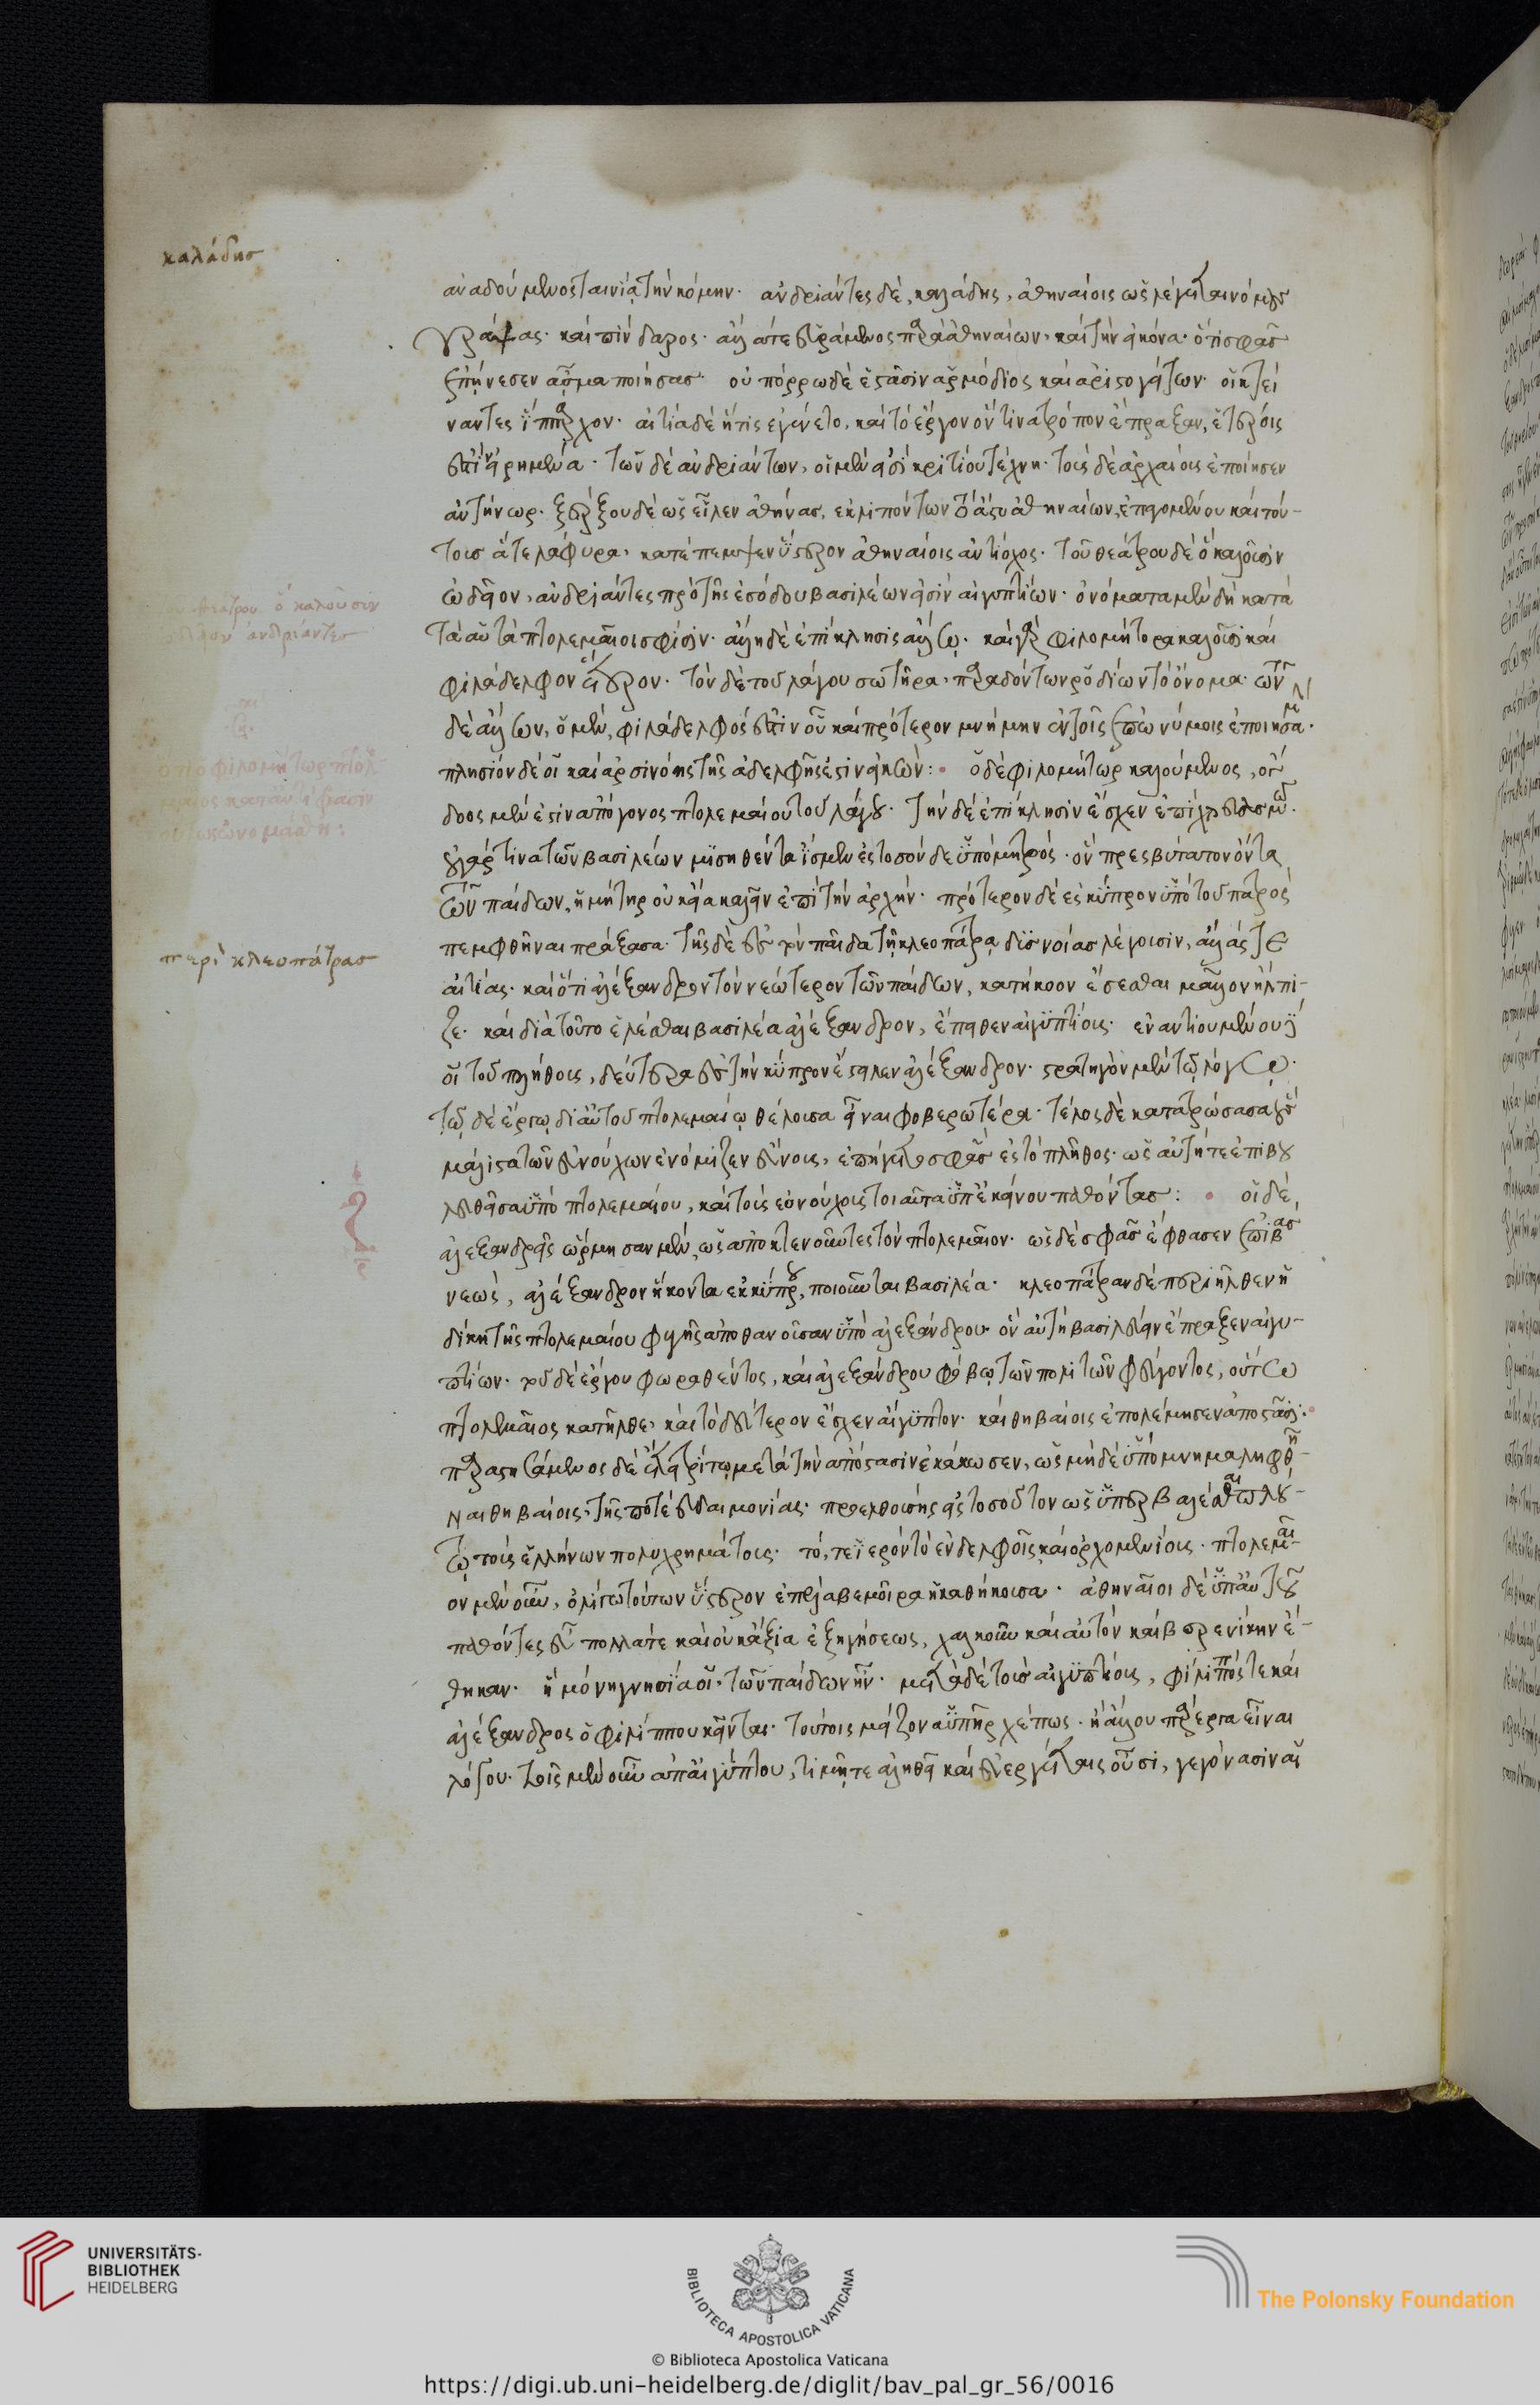 καλάδης
ἀναδούμενος ταινίᾳ τὴν κόμην· ἀνδριάντες δὲ, καλάδης, ἀθηναίοις ὡς λέγεται νόμους
γράψας· καὶ πίνδαρος· ἄλλα τε εὑράμενος παρὰ ἀθηναίων, καὶ τὴν εἰκόνα· ὅτι σφᾶσ
ἐπήνεσεν ἄσμα ποιήσασ· οὐ πόρρω δὲ ἑστᾶσιν ἁρμόδιος καὶ ἀριστογείτων· οἱ κτεί
ναντες ἵππαρχον· αἰτία δὲ ἥτις ἐγένετο, καὶ τὸ ἔργον ὅντινα τρόπον ἔπραξαν, ἑτέροις
ἐστὶν εἰρημένα· τῶν δὲ ἀνδριάντων, οἱ μὲν εἰσὶ κριτίου τέχνη· τοὺς δὲ ἀρχαίους ἐποίησεν
ἀντήνωρ· ξέρξου δὲ ὡς εἷλεν ἀθήνασ, ἐκλιπόντων τὸ ἄστυ ἀθηναίων, ἐπαγομένου καὶ τού-
τουσ ἅτε λάφυρα, κατέπεμψεν ὕστερον ἀθηναίοις ἀντίοχος· τοῦ θεάτρου δὲ ὃ καλοῦσιν
ὠδεῖον, ἀνδριάντες πρὸ τῆς ἐσόδου βασιλέων εἰσὶν αἰγυπτίων· ὀνόματα μὲν δὴ κατὰ
τὰ αὐτὰ πτολεμαῖοι σφίσιν· ἄλλη δὲ ἐπίκλησις ἄλλῳ· καὶ γὰρ φιλομήτορα καλοῦσι καὶ
φιλάδελφον ἕτερον· τὸν δὲ τοῦ λάγου σωτῆρα, παραδόντων ῥοδίων τὸ ὄνομα· τῶν
δὲ ἄλλων, ὁ μὲν, φιλάδελφός ἐστὶν οὗ καὶ πρότερον μνήμην ἐν τοῖς ἐπωνύμοις ἐποιησάμ·
πλησίον δέ οἱ καὶ ἀρσινόης τῆς ἀδελφῆς ἐστὶν εἰκών: ὁ δὲ φιλομήτωρ καλούμενος, ὄγ
δοος μέν ἐστιν ἀπόγονος πτολεμαίου τοῦ λάγου· τὴν δὲ ἐπίκλησιν ἔσχεν ἐπὶ χλευασμῷ·
οὐ γάρ τινα τῶν βασιλέων μισηθέντα ἴσμεν ἐς τοσόνδε ὑπὸ μητρός· ὃν πρεσβύτατον ὄντα
τῶν παίδων, ἡ μήτηρ οὐκ εἴα καλεῖν ἐπὶ τὴν ἀρχήν· πρότερον δὲ ἐς κύπρον ὑπὸ τοῦ πατρὸς
πεμφθῆναι πράξασα· τῆς δὲ ἐς τὸν παῖδα τῇ κλεοπάτρᾳ δυσνοίας λέγουσιν, ἄλλας τε
αἰτίας· καὶ ὅτι ἀλέξανδρον τὸν νεώτερον τῶν παίδων, κατήκοον ἔσεσθαι μᾶλλον ἤλπι-
ζε· καὶ διὰ τοῦτο ἑλέσθαι βασιλέα ἀλέξανδρον, ἔπειθεν αἰγυπτίους· ἐναντιουμένου δέ
οἱ τοῦ πλήθους, δεύτερα ἐς τὴν κύπρον ἔστειλεν ἀλέξανδρον· στρατηγὸν μὲν τῷ λόγῳ·
τῷ δὲ ἔργῳ δι' αὐτοῦ πτολεμαίῳ θέλουσα εἶναι φοβερωτέρα· τέλος δὲ κατατρώσασα οὓς
μάλιστα τῶν εὐνούχων ἐνόμιζεν εὔνους, ἐπήγετο σφᾶς ἐς τὸ πλῆθος· ὡς αὐτή τε ἐπιβου
λευθεῖσα ὑπὸ πτολεμαίου, καὶ τοὺς εὐνούχους τοιαῦτα ὑπ' ἐκείνου παθόντασ: οἱ δὲ
ἀλεξανδρεῖς ὥρμησαν μὲν, ὡς ἀποκτενοῦντες τὸν πτολεμαῖον· ὡς δέ σφᾶσ ἔφθασεν ἐπιβὰσ
νεὼς, ἀλέξανδρον ἥκοντα ἐκ κύπρου, ποιοῦνται βασιλέα· κλεοπάτραν δὲ περιῆλθεν ἡ
δίκη τῆς πτολεμαίου φυγῆς ἀποθανοῦσαν ὑπὸ ἀλεξάνδρου· ὃν αὐτὴ βασιλεύειν ἔπραξεν αἰγυ-
πτίων· τοῦ δὲ ἔργου φωραθέντος, καὶ ἀλεξάνδρου φόβῳ τῶν πολιτῶν φεύγοντος, οὕτω
πτολεμαῖος κατῆλθε, καὶ τὸ δεύτερον ἔσχεν αἴγυπτον· καὶ θηβαίοις ἐπολέμησεν ἀποστᾶσι·
παραστησάμενος δὲ ἔτει τρίτῳ μετὰ τὴν ἀπόστασιν ἐκάκωσεν, ὡς μὴ δὲ ὑπόμνημα λειφθῆ-
ναι θηβαίοις, τῆς ποτὲ εὐδαιμονίας· προελθούσης ἐς τοσοῦτον ὡς ὑπερβαλέσθαι πλού-
τῳ τοὺς ἑλλήνων πολυχρημάτους· τό, τε ἱερὸν τὸ ἐν δελφοῖς καὶ ὀρχομενίους· πτολεμαῖ-
ον μὲν οὖν, ὀλίγῳ τούτων ὕστερον ἐπέλαβε μοῖρα ἡ καθήκουσα· ἀθηναῖοι δὲ ὑπ' αὐτοῦ
παθόντες εὖ πολλά τε καὶ οὐκ ἄξια ἐξηγήσεως, χαλκοῦν καὶ αὐτὸν καὶ βερενίκην ἔ-
θηκαν· ἣ μόνη γνησία οἱ, τῶν παίδων ἦν· μετὰ δὲ τοὺσ αἰγυπτίους, φίλιππός τε καὶ
ἀλέξανδρος ὁ φιλίππου κεῖνται· τούτοις μείζονα ὑπῆρχέ πως· ἢ ἄλλου πάρεργα εἶναι
λόγου· τοῖς μὲν οὖν ἀπ' αἰγύπτου, τιμῇ τε ἀληθεῖ καὶ εὐεργέταις οὖσι, γεγόνασιν αἱ
θεάτρου ὃ καλοῦσιν
ἀνδριάντεσ
φιλομήτωρ πτολε
μαῖος κατ' ἀντίφρασιν
οὕτως ὠνομάσθη:
περὶ κλεοπάτρασ
UNIVERSITÄTS-
BIBLIOTHEK
HEIDELBERG
BIBLIOTECA APOSTOLICA VATICANA
© Biblioteca Apostolica Vaticana
The Polonsky Foundation
https://digi.ub.uni-heidelberg.de/diglit/bav_pal_gr_56/0016